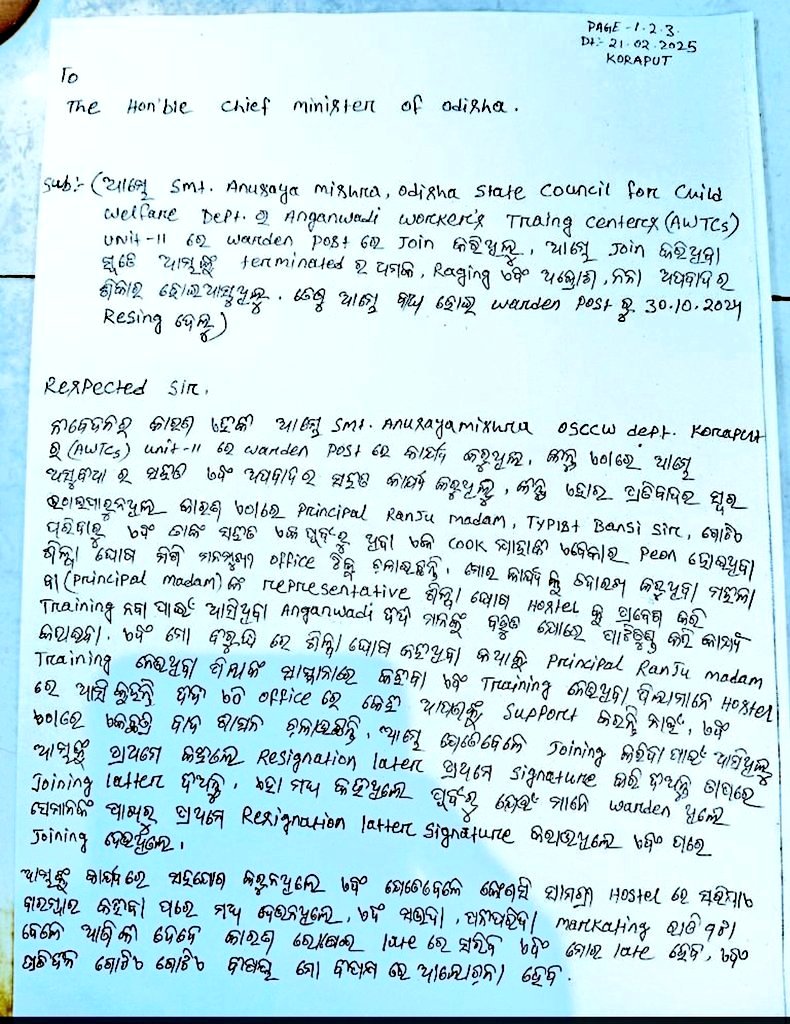 PAGE - 1.2.3.
Dt:- 21.02.2025
KORAPUT
To
The Hon'ble Chief minister of odisha.
Sub:- (ଆମ୍ଭେ Smt. Anusaya mishra, odisha State Council for Child
Welfare Dept. ର Anganwadi worker's Traing Centers (AWTCs)
unit-11 ରେ warden Post ରେ Join କରିଥିଲୁ, ଆମ୍ଭେ Join କରିଥିବା
ଆମ୍ଭଙ୍କୁ terminated ର ଧମକ, Raging ଏବଂ ଅପବାଦ ର
ଶିକାର ହୋଇଆସୁଥିଲୁ. ତେଣୁ ଆମ୍ଭେ ବାଧ୍ୟ ହୋଇ warden Post ରୁ 30.10.2024
Resing ଦେଲୁ)
Respected Sir,
କାରଣ ଏହିକି ଆମ୍ଭେ Smt. Anusayamishra OSCCW dept. Koraput
ର (AWTCs) unit-11 ରେ warden Post ରେ କାର୍ଯ୍ୟ କରୁଥିଲୁ, କିନ୍ତୁ ଏଠାରେ ଆମ୍ଭେ
ଅସୁବିଧା ର ସହିତ ଏବଂ ଅପବାଦର ସହିତ କାର୍ଯ୍ୟ କରୁଥିଲୁ, କିନ୍ତୁ ଏହାର ପ୍ରତିବାଦର ସ୍ୱର
କାରଣ ଏଠାରେ Principal Ranju madam, Typist Bansi Sir, ଗୋଟିଏ
ପରିବାରୁ ଏବଂ ତାଙ୍କ ସହିତ ଏକ ପୂର୍ବରୁ ଥିବା ଏକ Cook ଯାହାକି ଏବେକାର Peon ହୋଇଥିବା
ଶିଳ୍ପା ଘୋଷ ମିଶି office ଟିକୁ ଚଳାଉଛନ୍ତି. ମୋର କାର୍ଯ୍ୟ କୁ କରୁଥିବା ମହିଳା
ବା (Principal madam) ଙ୍କ representative ଶିଳ୍ପା ଘୋଷ Hostel କୁ ପ୍ରବେଶ କରି
Training ନେବା ପାଇଁ ଆସିଥିବା Anganwadi ଦିଦି ମାନଙ୍କୁ କରି କାର୍ଯ୍ୟ
କରାଇବା. ଏବଂ ମୋ ବିରୁଦ୍ଧ ରେ ଶିଳ୍ପା ଘୋଷ କହିଥିବା କଥାକୁ Principal Ranju madam
Training ନେଇଥିବା କହିବା ଏବଂ Training ନେଇଥିବା ପିଲାମାନେ Hostel
ରେ ଆସି କୁହନ୍ତି ଦିଦି ଏଠି office ରେ କେହି ଆପଣଙ୍କୁ Support କରନ୍ତି ନାହିଁ, ଏବଂ
ଏଠାରେ ଏକଛତ୍ର ବାଦ ଶାସନ ଚଳାଇଛନ୍ତି. ଆମ୍ଭେ ଯେତେବେଳେ Joining କରିବା ପାଇଁ ଆସିଥିଲୁ
ଆମ୍ଭଙ୍କୁ ପ୍ରଥମେ କହିଲେ Resignation later ପ୍ରଥମେ signature କରି ଦିଅନ୍ତୁ ତାପରେ
Joining latter ଦିଅନ୍ତୁ. ଏହା ମଧ୍ୟ କହିଥିଲେ ପୂର୍ବରୁ ଯେଉଁ ମାନେ warden ଥିଲେ
ସେମାନଙ୍କ ପାଖରୁ ପ୍ରଥମେ Resignation latter signature କରାଉଥିଲେ ଏବଂ ପରେ
Joining ଦେଉଥିଲେ.
ଆମ୍ଭଙ୍କୁ କାର୍ଯ୍ୟରେ ସହଯୋଗ କରୁନଥିଲେ ଏବଂ ଯେତେବେଳେ କୌଣସି ସାମଗ୍ରୀ Hostel ରେ
ବାରମ୍ବାର କହିବା ପରେ ମଧ୍ୟ ଦେଉନଥିଲେ, ଏବଂ ସଉଦା, ପନିପରିବା markating ରାତି
ବେଳେ ଆଣିକି ଦେବେ କାରଣ ରୋଷେଇ late ରେ ସରିବ ଏବଂ ମୋର late ହେବ, ଏବଂ
ପ୍ରତିଦିନ ଗୋଟିଏ ଗୋଟିଏ ବିଷୟ ମୋ ବିପକ୍ଷ ରେ ଆଲୋଚନା ହେବ.